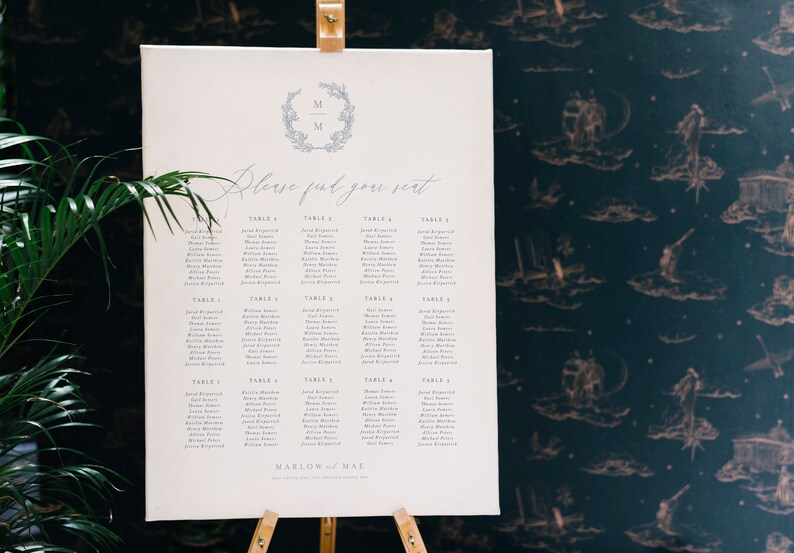 M
M
Please find your seat
TABLE 1
Jarod Kirpatrick
Gail Somers
Thomas Somers
Laura Somers
William Somers
Kaitlin Matthew
Henry Matthew
Allison Peters
Michael Peters
Jessica Kirpatrick
TABLE 2
Jarod Kirpatrick
Gail Somers
Thomas Somers
Laura Somers
William Somers
Kaitlin Matthew
Henry Matthew
Allison Peters
Michael Peters
Jessica Kirpatrick
TABLE 3
Jarod Kirpatrick
Gail Somers
Thomas Somers
Laura Somers
William Somers
Kaitlin Matthew
Henry Matthew
Allison Peters
Michael Peters
Jessica Kirpatrick
TABLE 4
Jarod Kirpatrick
Gail Somers
Thomas Somers
Laura Somers
William Somers
Kaitlin Matthew
Henry Matthew
Allison Peters
Michael Peters
Jessica Kirpatrick
TABLE 5
Jarod Kirpatrick
Gail Somers
Thomas Somers
Laura Somers
William Somers
Kaitlin Matthew
Henry Matthew
Allison Peters
Michael Peters
Jessica Kirpatrick
TABLE 1
Jarod Kirpatrick
Gail Somers
Thomas Somers
Laura Somers
William Somers
Kaitlin Matthew
Henry Matthew
Allison Peters
Michael Peters
Jessica Kirpatrick
TABLE 2
William Somers
Kaitlin Matthew
Henry Matthew
Allison Peters
Michael Peters
Jessica Kirpatrick
Gail Somers
Thomas Somers
Laura Somers
TABLE 3
William Somers
Kaitlin Matthew
Henry Matthew
Allison Peters
Gail Somers
Thomas Somers
Laura Somers
Michael Peters
Jessica Kirpatrick
TABLE 4
Gail Somers
Thomas Somers
Laura Somers
William Somers
Kaitlin Matthew
Henry Matthew
Allison Peters
Michael Peters
Jessica Kirpatrick
TABLE 5
Jarod Kirpatrick
Gail Somers
Thomas Somers
Laura Somers
William Somers
Kaitlin Matthew
Henry Matthew
Allison Peters
Michael Peters
Jessica Kirpatrick
TABLE 1
Jarod Kirpatrick
Gail Somers
Thomas Somers
Laura Somers
William Somers
Kaitlin Matthew
Henry Matthew
Allison Peters
Michael Peters
Jessica Kirpatrick
TABLE 2
Kaitlin Matthew
Henry Matthew
Allison Peters
Michael Peters
Jessica Kirpatrick
Gail Somers
Thomas Somers
Laura Somers
William Somers
TABLE 3
Jarod Kirpatrick
Gail Somers
Thomas Somers
Laura Somers
William Somers
Kaitlin Matthew
Henry Matthew
Allison Peters
Michael Peters
Jessica Kirpatrick
TABLE 4
Thomas Somers
Laura Somers
William Somers
Kaitlin Matthew
Henry Matthew
Allison Peters
Michael Peters
Jessica Kirpatrick
Gail Somers
TABLE 5
Jarod Kirpatrick
Gail Somers
Thomas Somers
Laura Somers
William Somers
Kaitlin Matthew
Henry Matthew
Allison Peters
Michael Peters
Jessica Kirpatrick
MARLOW and MAE
two thousand twenty two